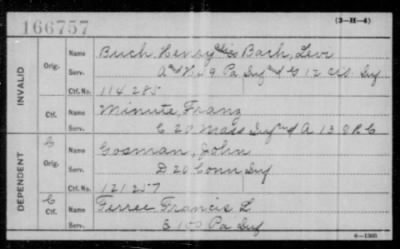 166757
(3-H-4)
INVALID
Orig.
Name Buch, Henry alias Bach, Levi
Serv. A and H 59 Pa Inf and G 12 U.S. Inf
Ctf. No. 114285
Ctf.
Name Minute, Franz
Serv. C 20 Mass Inf and A 13 V R C
DEPENDENT
C
Orig.
Name Gosman, John
Serv. D 20 Conn Inf
Ctf. No. 121257
C
Ctf.
Name Ferree Francis L
Serv. B 150 Pa Inf